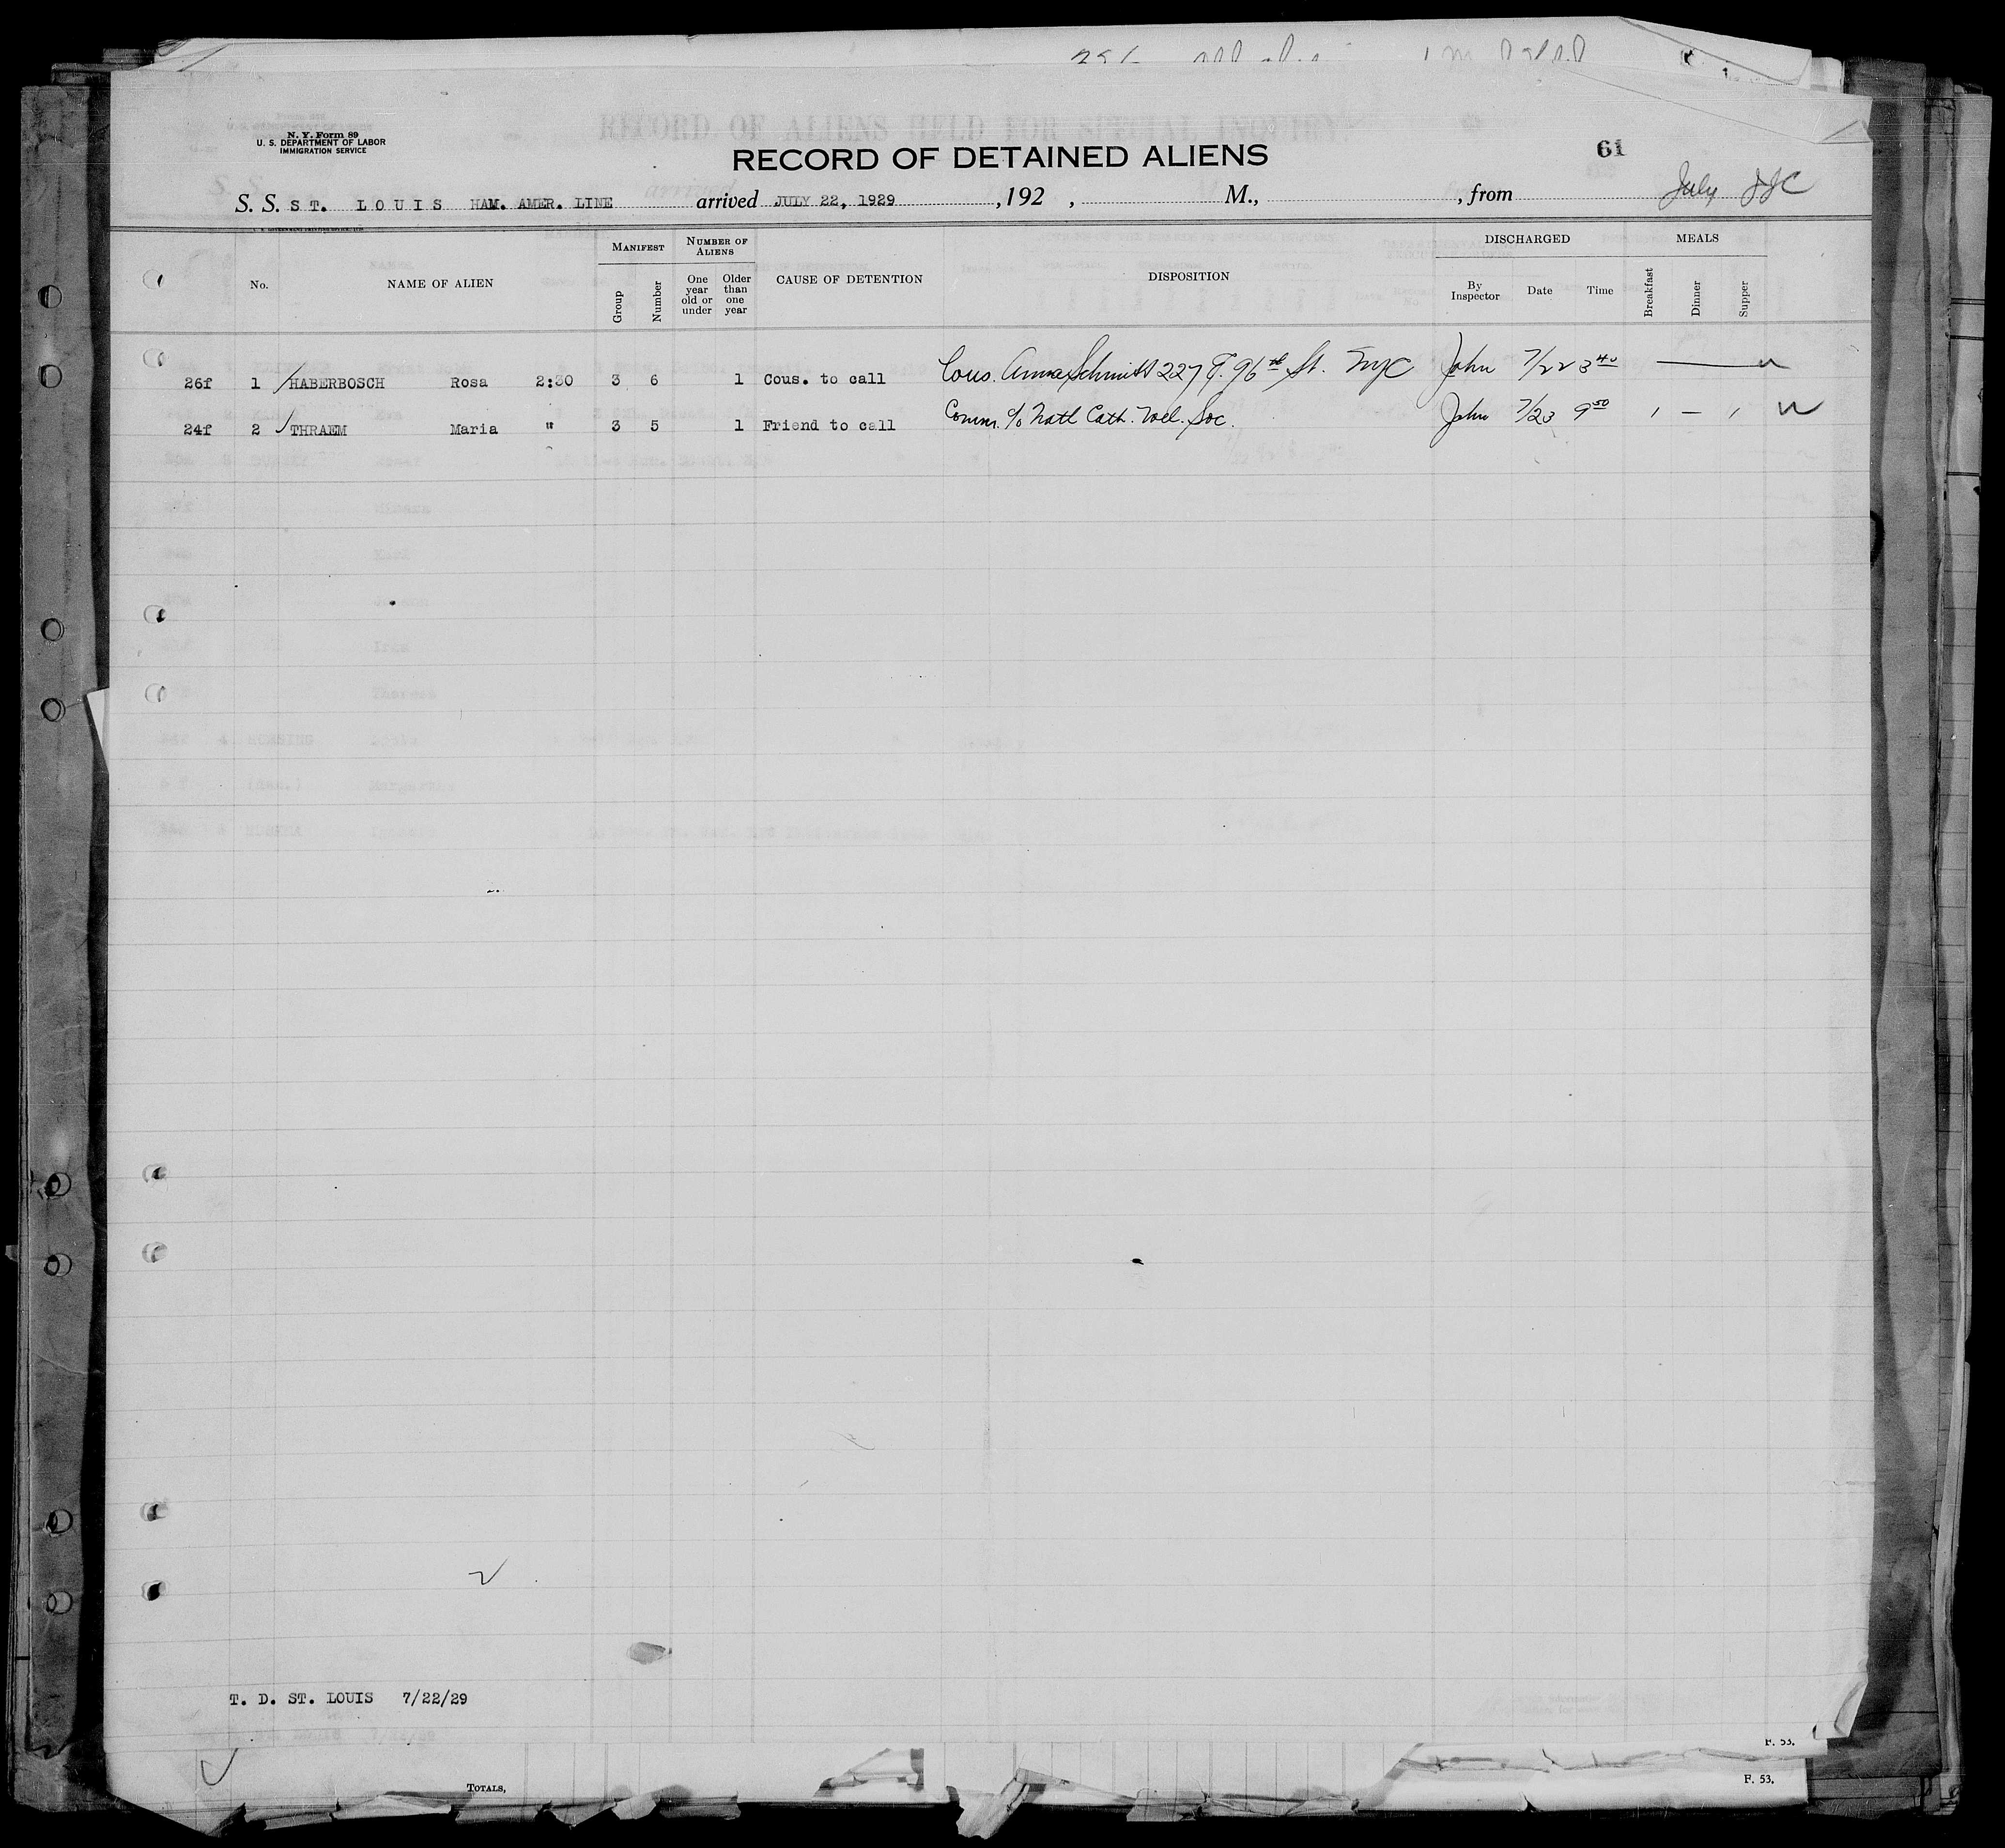 N. Y. Form 89
U. S. DEPARTMENT OF LABOR
IMMIGRATION SERVICE
RECORD OF ALIENS HELD FOR SPECIAL INQUIRY
RECORD OF DETAINED ALIENS
61
S. S. ST. LOUIS HAM. AMER. LINE arrived JULY 22, 1929 , 192 , M., , from July
No. NAME OF ALIEN MANIFEST Group Number NUMBER OF ALIENS One year old or under Older than one year CAUSE OF DETENTION DISPOSITION DISCHARGED By Inspector Date Time MEALS Breakfast Dinner Supper
26f 1 HABERBOSCH Rosa 2:30 3 6 1 Cous. to call Cous. Anna Schmitt 227 E. 96th St. NYC John 7/22 3 40
24f 2 THRAEM Maria " 3 5 1 Friend to call Comm. c/o Natl Cath. Wel. Soc. John 7/23 9 50
T. D. ST. LOUIS 7/22/29
F. 53.
TOTALS,
F. 53.